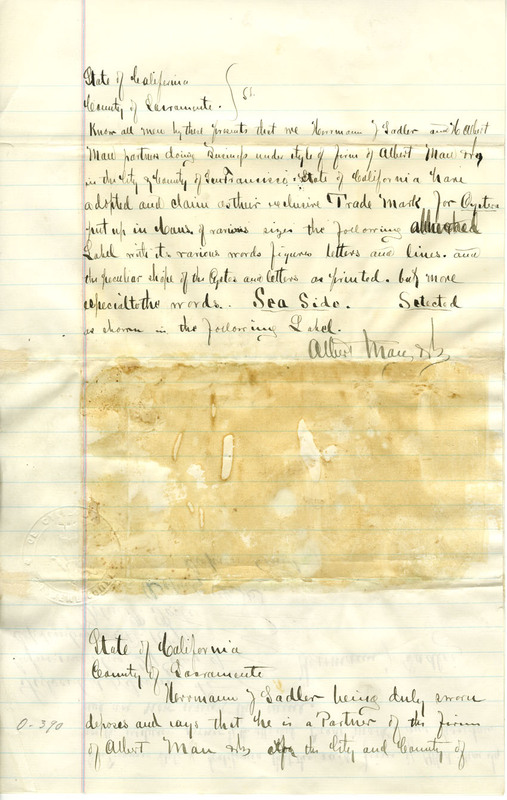 State of California
County of Sacramento. } ss.
Know all men by these presents that we Herrmann J Sadler and H Albert
Mau partners doing Business under style of firm of Albert Mau & Co
in the City & County of San Francisco State of California have
adopted and claim as their exclusive Trade Mark for Oysters
put up in Cans of various sizes the following attached
Label with its various words figures letters and lines. and
the peculiar shape of the Oyster and letters as printed. but more
especial to the words.. Sea Side. Selected
as shown in the following Label.
Albert Mau & Co
State of California
County of Sacramento
Herrmann J Sadler being duly sworn
deposes and says that he is a Partner of the firm
0-390
of Albert Mau & Co of the City and County of